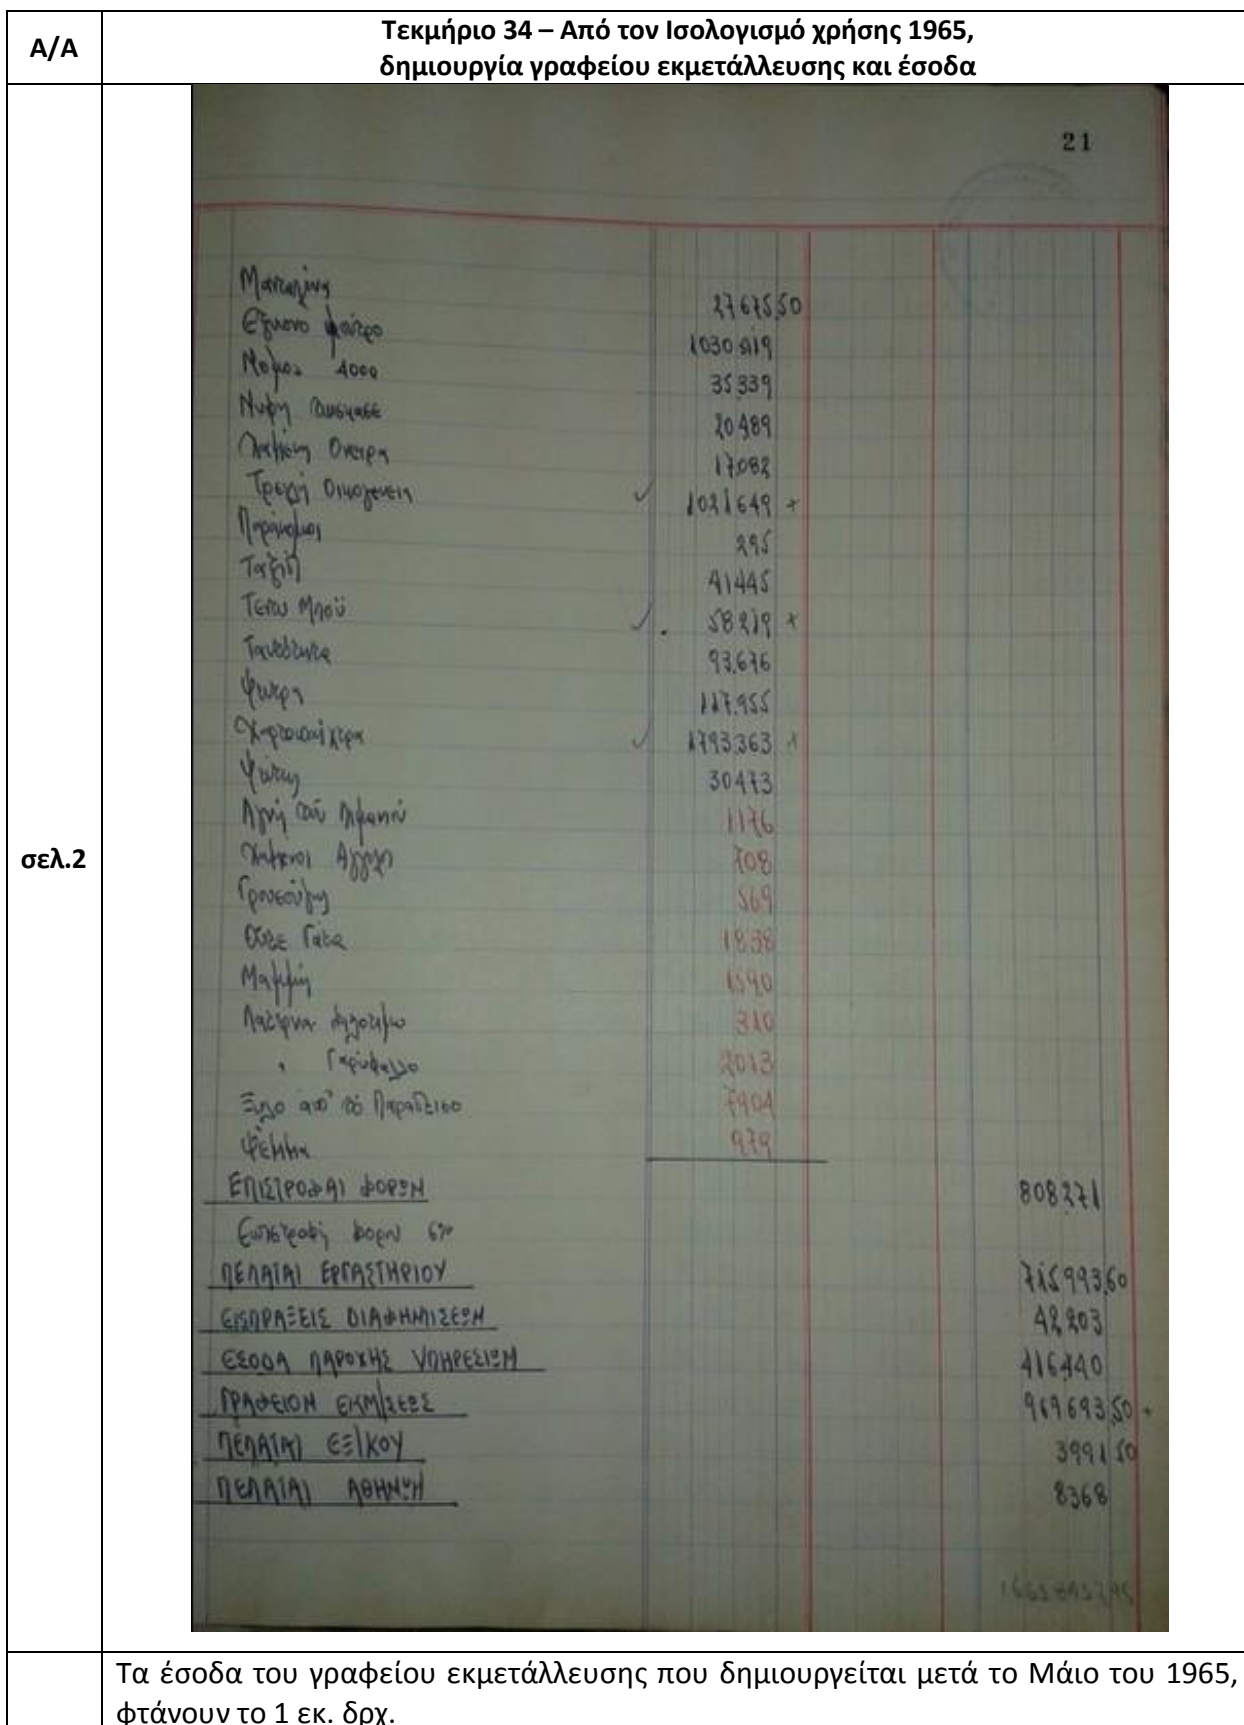 Α/Α
Τεκμήριο 34 – Από τον Ισολογισμό χρήσης 1965,
δημιουργία γραφείου εκμετάλλευσης και έσοδα
σελ.2
21
27675,50
Έξυπνο 1030519
Νόμος 4000 35339
Νύφη 20489
Όνειρα 17082
Τρελλή Οικογένεια 1021649 +
Παράνομοι 295
Ταξίδι 41445
Τέντυ Μπόϋ 58219 +
93.676
Ψεύτρα 117.955
Χαρτοπαίχτρα 1793.363
Ψεύτης 30473
Αγνή του Λιμανιού 1176
Χαμένοι Άγγελοι 708
Γρουσούζης 569
Γάτα 1838
1590
Λατέρνα Φιλότιμο 310
" Γαρύφαλλο 2013
Ξύλο απ' το Παράδεισο 7904
Ψέμμα 979
ΕΠΙΣΤΡΟΦΑΙ ΦΟΡΩΝ 808271
Επιστροφή φόρου 6%
ΠΕΛΑΤΑΙ ΕΡΓΑΣΤΗΡΙΟΥ 715993,60
ΕΙΣΠΡΑΞΕΙΣ ΔΙΑΦΗΜΙΣΕΩΝ 42203
ΕΣΟΔΑ ΠΑΡΟΧΗΣ ΥΠΗΡΕΣΙΩΝ 416440
ΓΡΑΦΕΙΟΝ ΕΚΜ/ΣΕΩΣ 969693,50 +
ΠΕΛΑΤΑΙ ΕΞ/ΚΟΥ 3991 50
ΠΕΛΑΤΑΙ ΑΘΗΝΩΝ 8368
Τα έσοδα του γραφείου εκμετάλλευσης που δημιουργείται μετά το Μάιο του 1965,
φτάνουν το 1 εκ. δρχ.